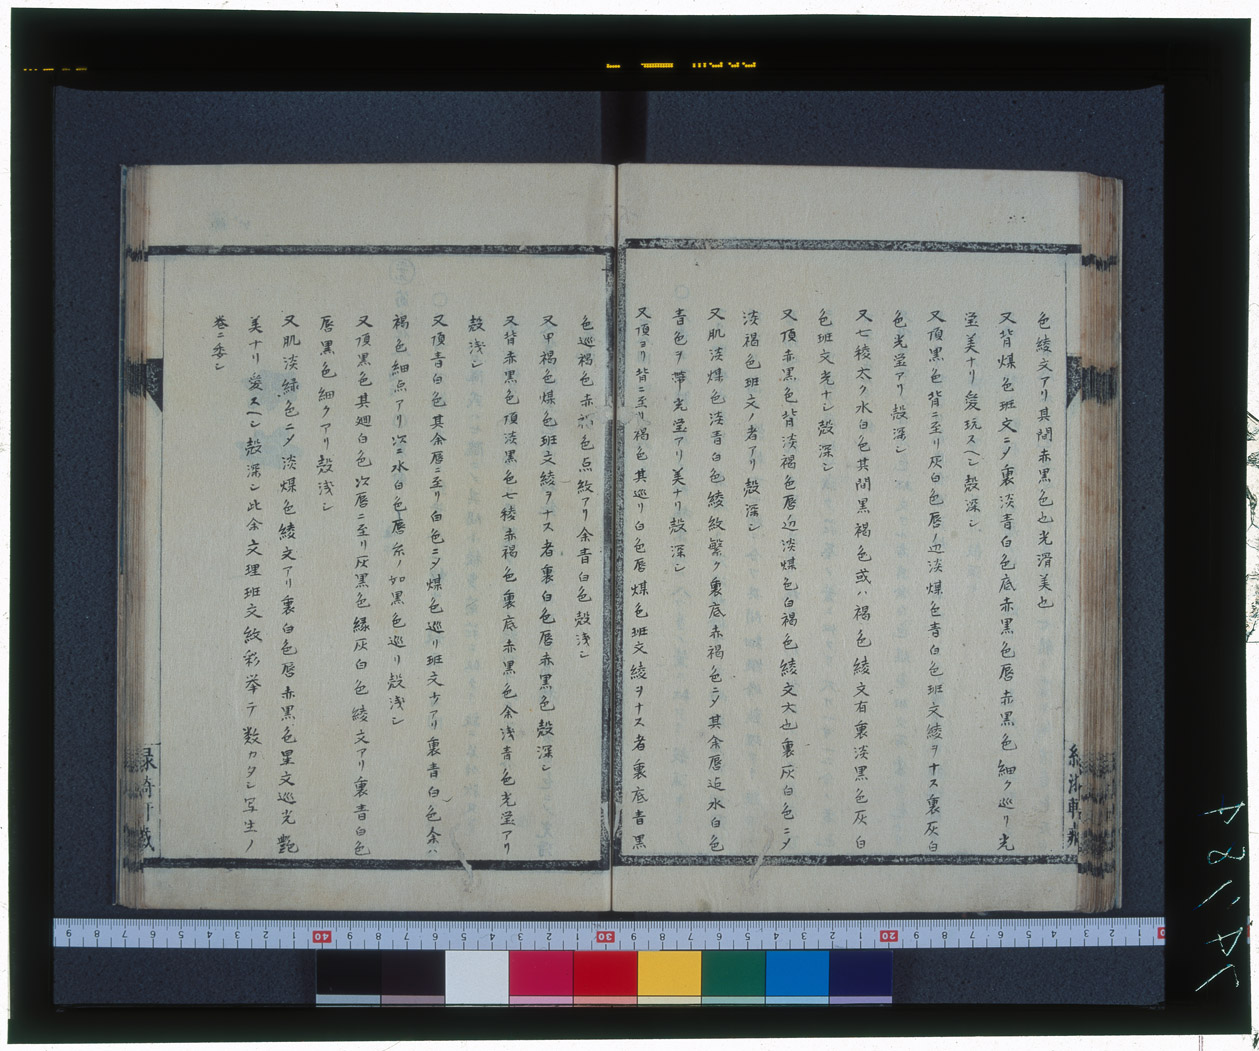 色綾文アリ其間赤黒色也光滑美也
又背煤色班文ニメ裏淡青白色底赤黒色唇赤黒色細ク巡リ光
瑩美ナリ愛玩スヘシ殻深シ
又頂黒色背ニ至リ灰白色唇ノ辺淡煤色青白色班文綾ヲナス裏灰白
色光瑩アリ殻深シ
又七稜太ク水白色其間黒褐色或ハ褐色綾文有裏淡黒色灰白
色班文光ナシ殻深シ
又頂赤黒色背淡褐色唇辺淡煤色白褐色綾文大也裏灰白色ニメ
淡褐色班文ノ者アリ殻深シ
又肌淡煤色淡青白色綾紋繁ク裏底赤褐色ニメ其余唇迠水白色
青色ヲ帯光瑩アリ美ナリ殻深シ
又頂ヨリ背ニ至リ褐色其巡リ白色唇煤色班文綾ヲナス者裏底青黒
色巡褐色赤褐色点紋アリ余青白色殻浅シ
又甲褐色煤色班文綾ヲナス者裏白色唇赤黒色殻深シ
又背赤黒色頂淡黒色七稜赤褐色裏底赤黒色余浅青色光瑩アリ
殻浅シ
〇又頂青白色其余唇ニ至リ白色ニメ煤色巡リ班文少アリ裏青白色余ハ
褐色細点アリ次ニ水白色唇糸ノ如黒色巡リ殻浅シ
又頂黒色其廻白色次唇ニ至リ灰黒色縁灰白色綾文アリ裏青白色
唇黒色細クアリ殻浅シ
又肌淡緑色ニメ淡煤色綾文アリ裏白色唇赤黒色星文巡光艶
美ナリ愛スヘシ殻深シ此余文理班文紋彩挙テ数カタシ写生ノ
巻ニ委シ